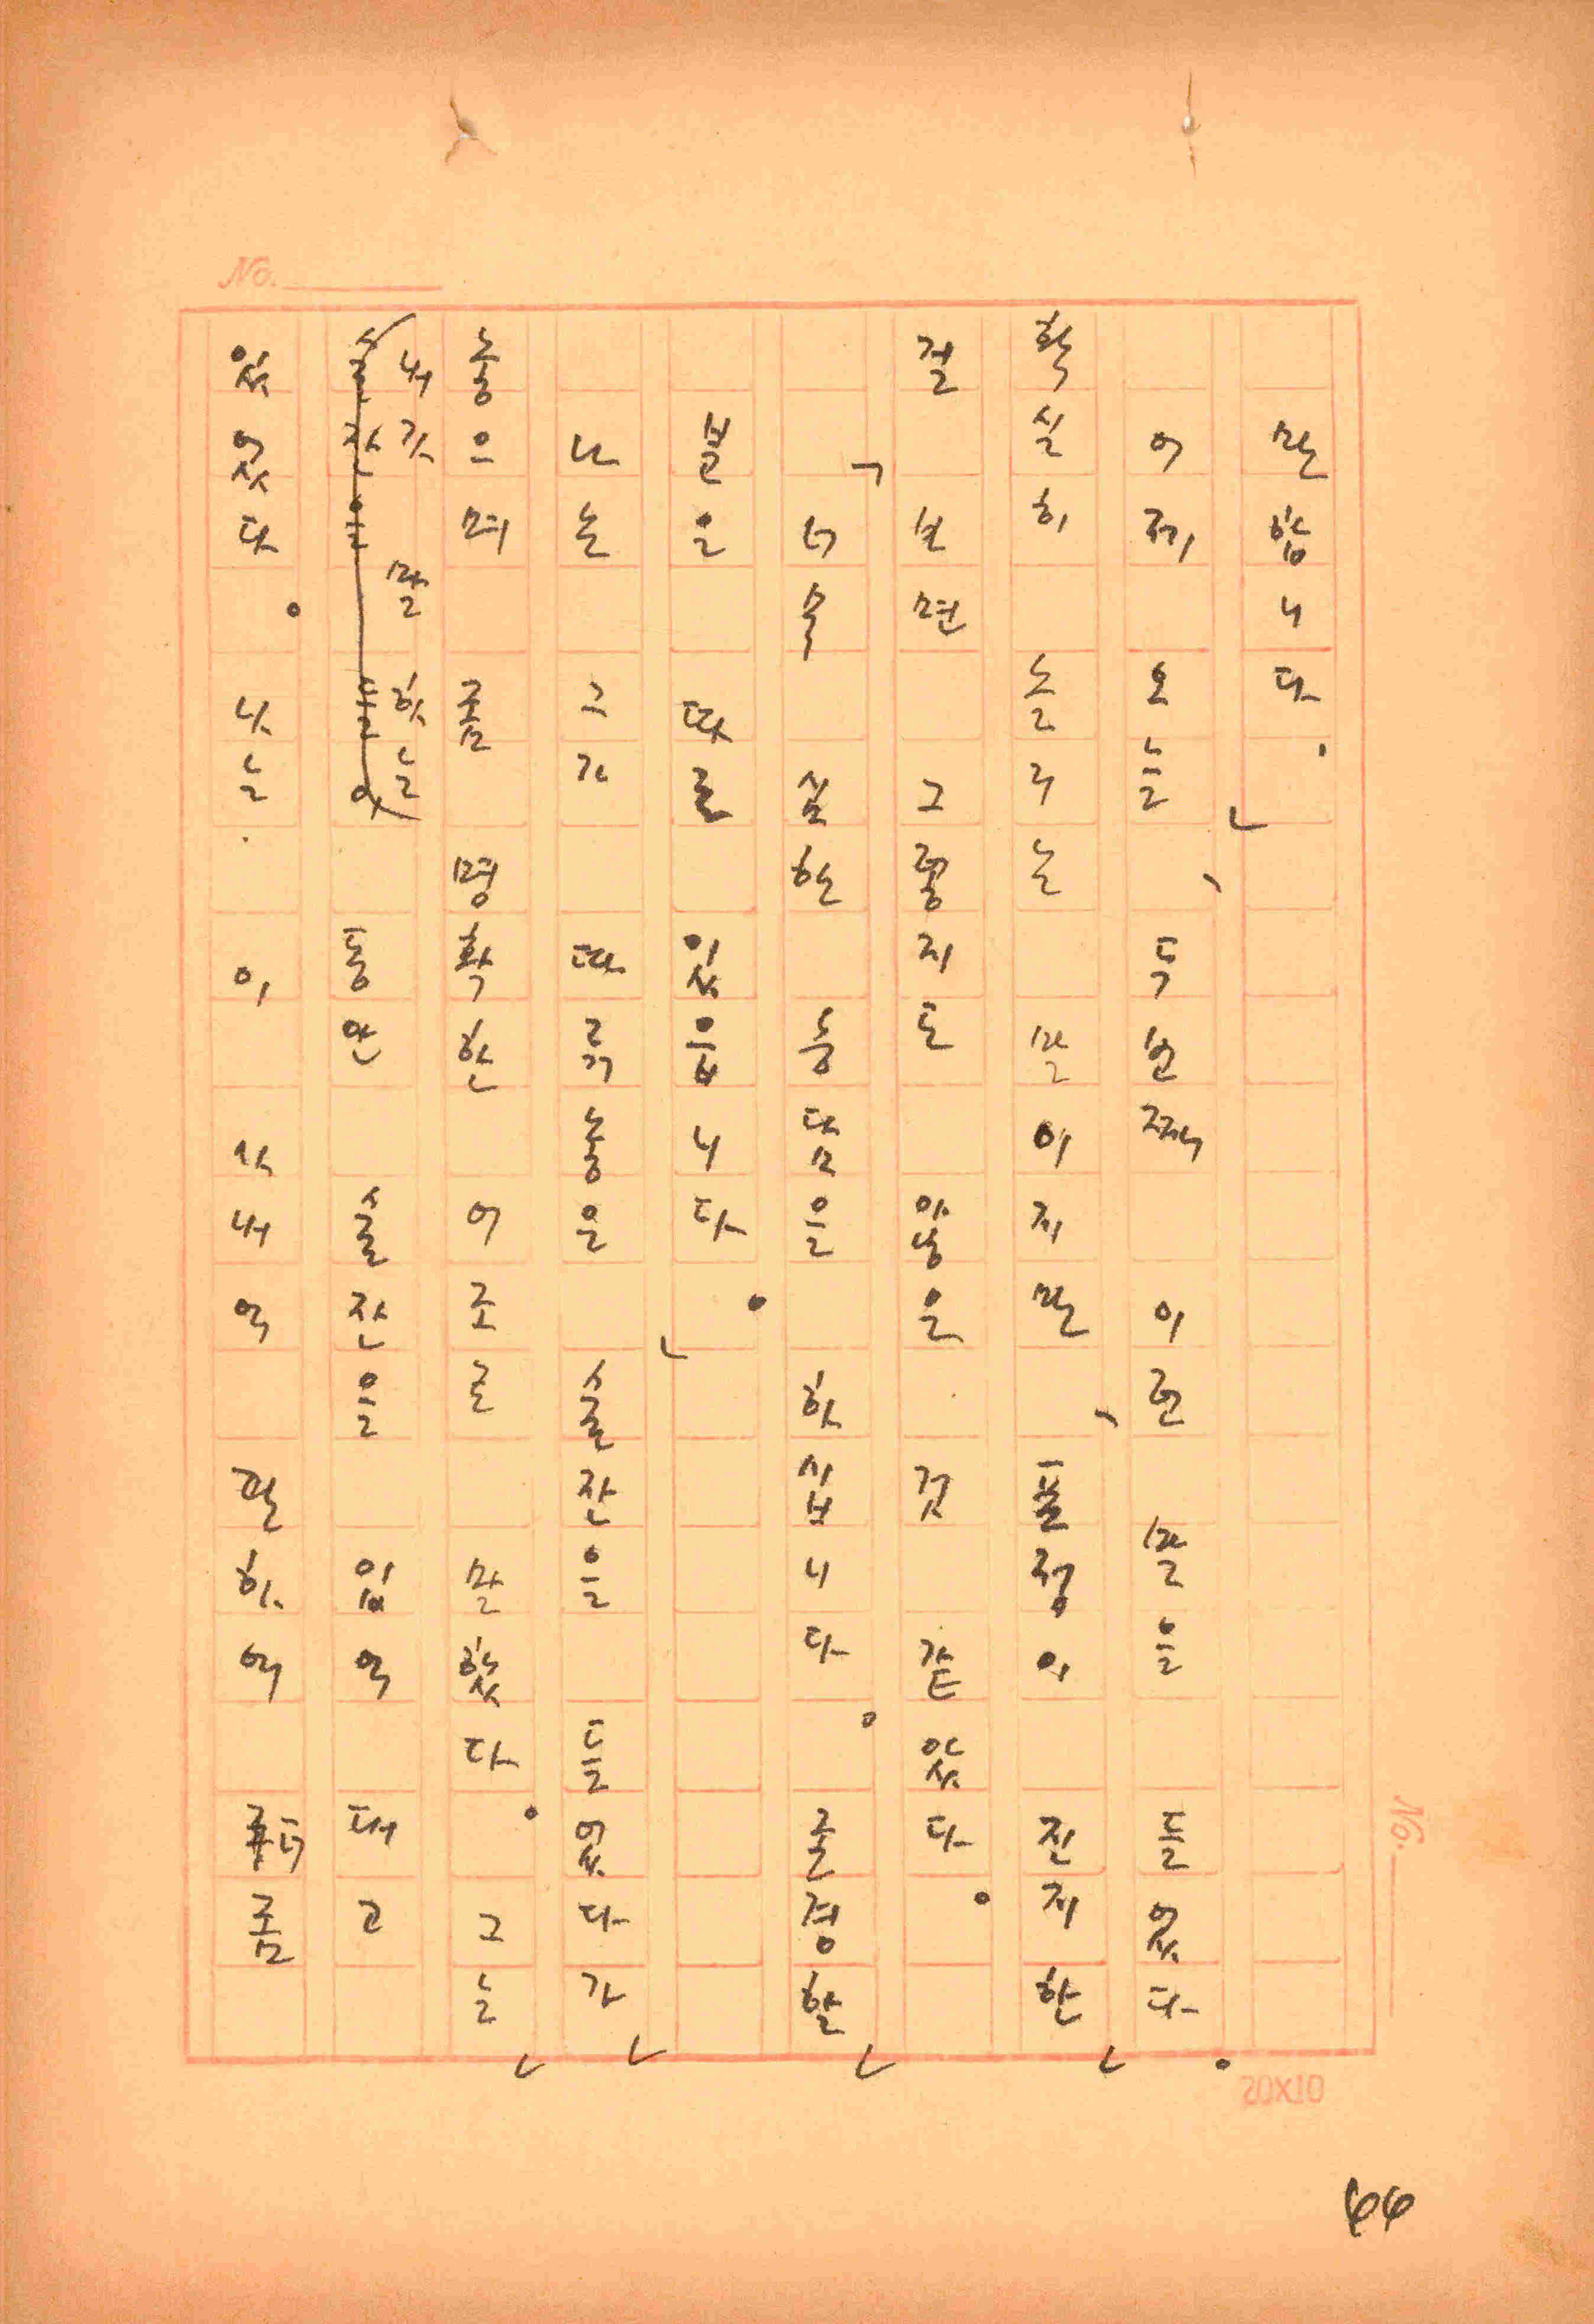 만합니다.」
어제 오늘, 두번째 이런 말을 들었다.
확실히 놀리는 말이지만, 표정이 진지한
걸 보면 그렇지도 않은 것 같았다.
「너무 심한 농담을 하십니다. 존경할
분은 따로 있읍니다.」
나는 그가 따뤄놓은 술잔을 들었다가
놓으며 좀 명확한 어조로 말했다. 그는
내가 말하는
술잔을 들어
동안 술잔을 입에 대고
있었다. 나는 이 사내에 관하여 더 좀
No.
No.
20X10
44